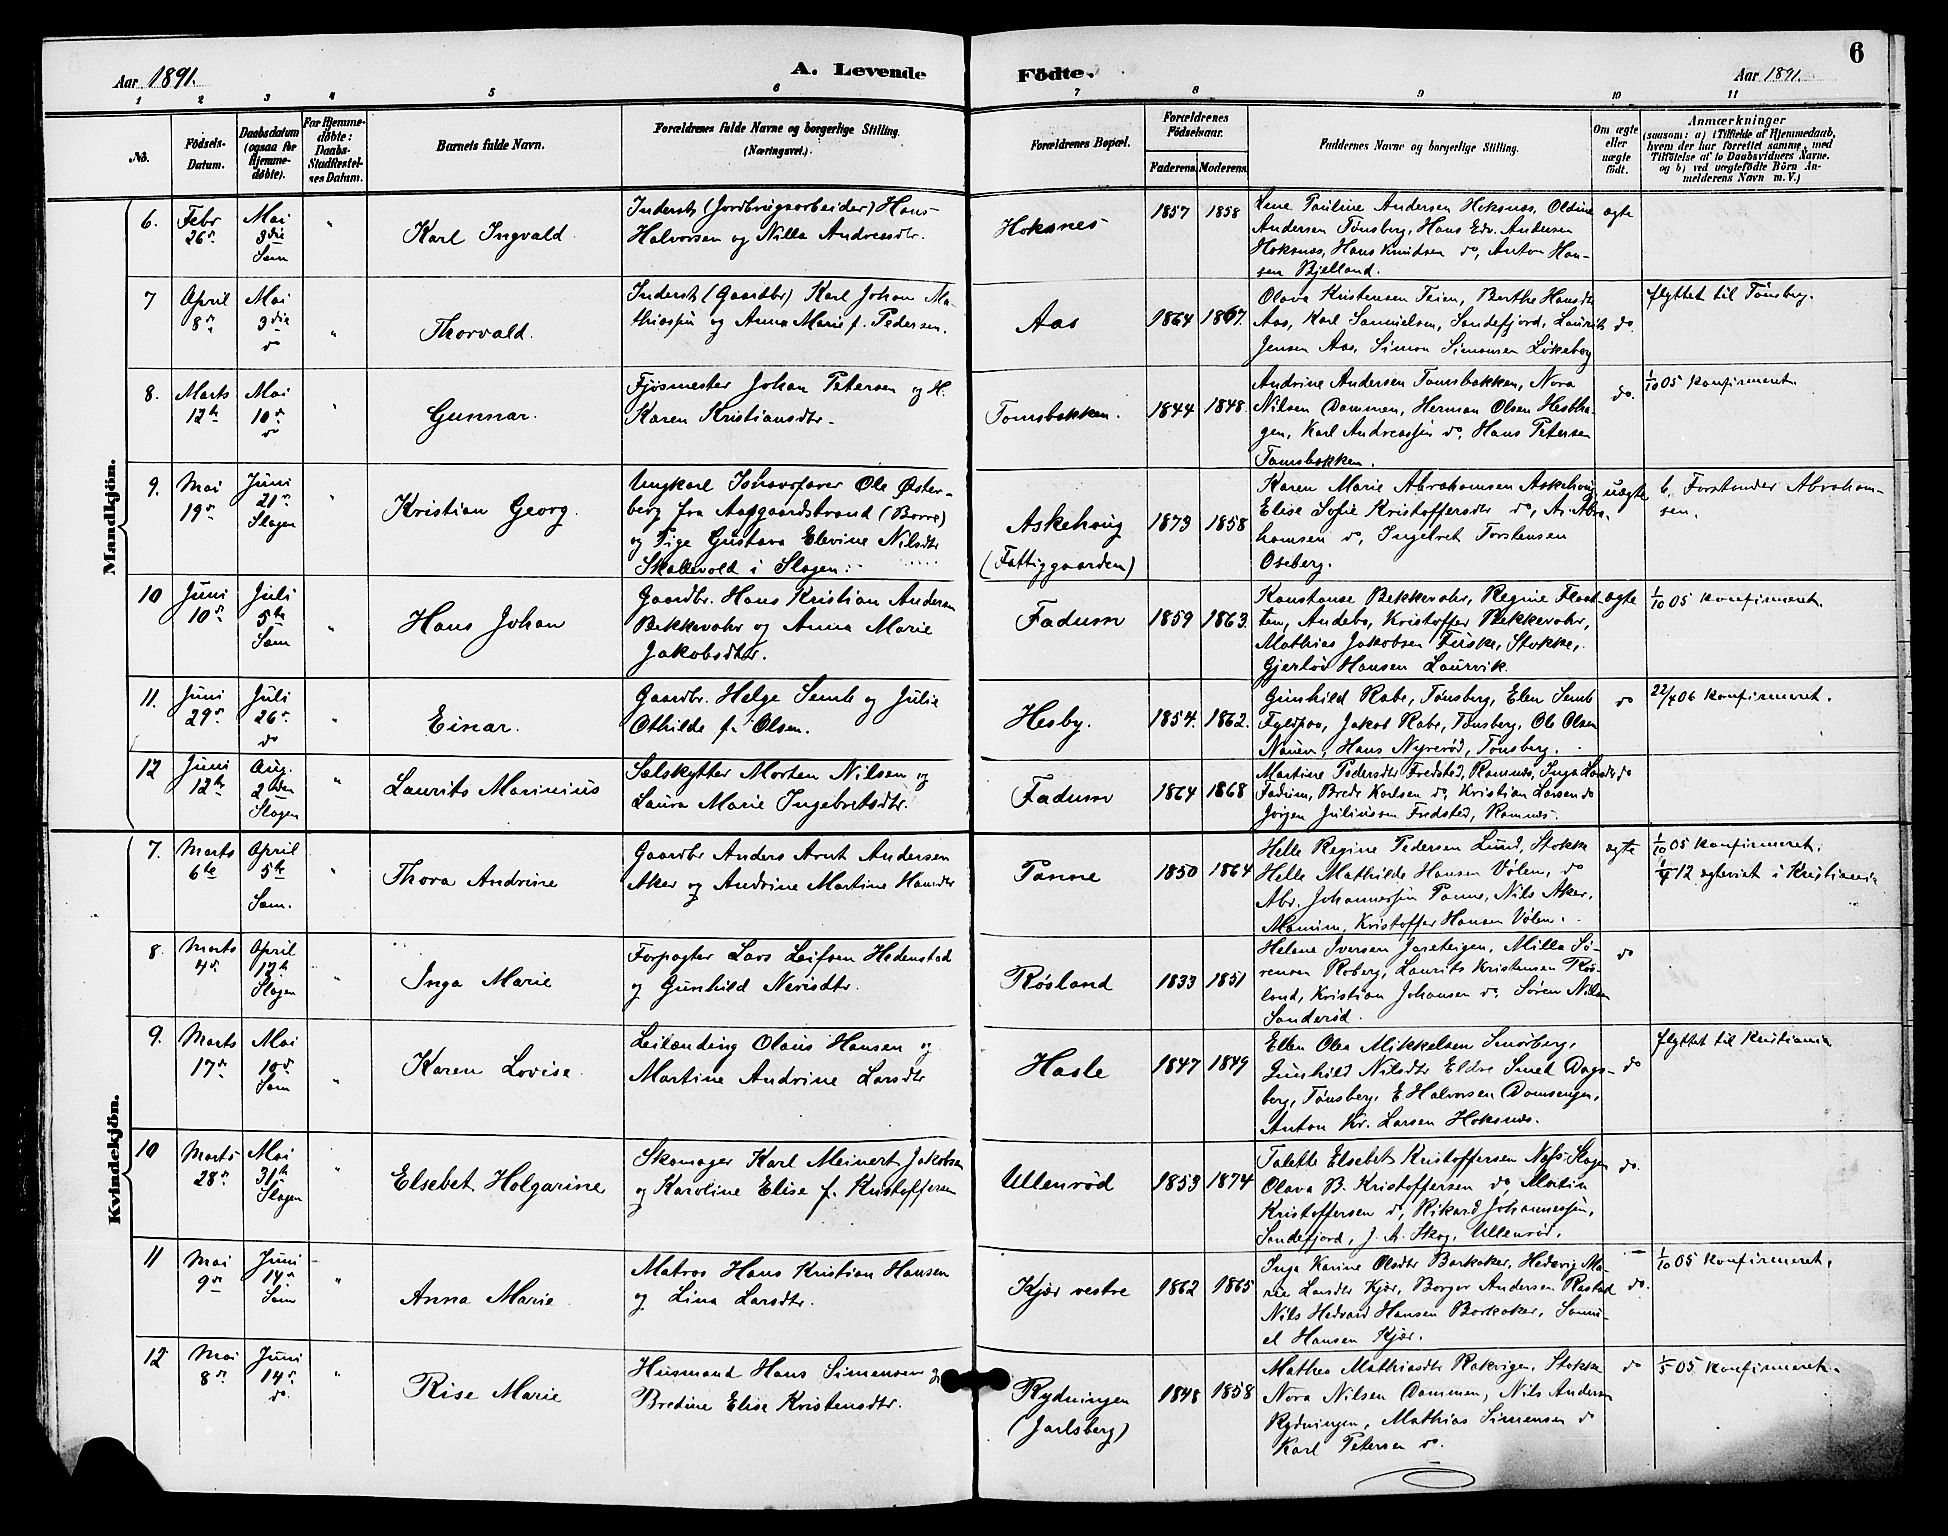 6
Aar 1891.
A. Levende
Födte.
Aar 1891.
1 2 3 4 5 6 7 8 9 10 11
No.
Födsels-
Datum.
Daabsdatum
(ogsaa for
Hjemme-
döbte).
For Hjemme-
döbte:
Daabs-
Stadfæstel-
ses Datum.
Barnets fulde Navn.
Forældrenes fulde Navne og borgerlige Stilling.
(Næringsvei.)
Forældrenes Bopæl.
Forældrenes
Födselsaar.
Faderens. Moderens.
Faddernes Navne og borgerlige Stilling.
Om ægte
eller
uægte
födt.
Anmærkninger
(saasom: a) i Tilfælde af Hjemmedaab,
hvem der har forrettet samme, med
Tilföielse af to Daabsvidners Navne.
og b) ved uægtefödte Börn An-
melderens Navn m. V.)
Mandkjön.
6. Febr 26de
Mai 3die Sem
"
Karl Ingvald
Inderst (Jordbrugsarbeider) Hans
Halvorsen og Nilla Andreasdtr.
Hoksnes
1857 1858
Lene Pauline Andersen Hoksnes, Oldine
Andersen Tønsberg, Hans Edv. Andersen
Hoksnes, Hans Knudsen do, Anton Han-
sen Bjelland.
ægte
7 April 8de
Mai 3die do
"
Thorvald.
Inderst (Gaardbr) Karl Johan Ma-
thiassen og Anna Marie f. Pedersen.
Aas
1864 1867.
Olava Kristensen Teien, Berthe Hansdtr
Aas, Karl Samuelsen, Sandefjord, Laurits
Jensen Aas, Simon Simonsen Løkeberg
do.
flyttet til Tønsberg.
8. Marts 12te
Mai 10de do
"
Gunnar.
Fjøsmester Johan Petersen og H.
Karen Kristiansdtr.
Tomsbakken.
1844 1848.
Andrine Andersen Tomsbakken, Nora
Nilsen Dammen, Herman Olsen Hesttha-
gen, Karl Andreassen do, Hans Petersen
Tomsbakken.
do.
1/10 05 konfirmeret.
9. Mai 19de
Juni 21de Slagen
"
Kristian Georg.
Ungkarl Ishavsfarer Ole Øster-
berg fra Aasgaardstrand (Borre)
og Pige Gustava Elevine Nilsdtr
Skallevold i Slagen.
Askehoug
(Fattiggaarden)
1873 1858
Karen Marie Abrahamsen Askehoug
Elise Sofie Kristoffersdtr do, A. Abra-
hamsen do, Ingebret Torstensen
Oseberg.
uægte
b, Forstander Abraham-
sen.
10 Juni 10de
Juli 5te Sem
"
Hans Johan
Gaardbr. Hans Kristian Andersen
Bekkevahr og Anna Marie
Jakobsdtr.
Fadum
1859 1863.
Konstanse Bekkevahr, Regine Flaat-
ten, Andebo, Kristoffer Bekkevahr,
Mathias Jakobsen Fuske, Stokke,
Gjerlöd Hansen Laurvik.
ægte
1/10 05 konfirmeret.
11. Juni 29de
Juli 26de do
"
Einar.
Gaardbr. Helge Semb og Julie
Othilde f. Olsen.
Hesby.
1854. 1862.
Gunhild Rabe, Tønsberg, Elen Semb
Fyldpaa, Jakob Rabe, Tønsberg, Ole Olsen
Nauen, Hans Nyrerød, Tønsberg.
do
22/4 06 konfirmeret.
12 Juni 12te
Aug. 2den Slagen
"
Laurits Marinius
Sælskytter Morten Nilsen og
Laura Marie Ingebretsdtr.
Fadum
1864 1868
Martine Pedersdtr Fredsted, Ramnes, Inga Larsdtr
Fadum, Brede Karlsen do, Kristian Larsen do
Jörgen Juliussen Fredsted, Ramnes.
do
Kvindekjön.
7. Marts 6te
April 5te Sem.
"
Thora Andrine
Gaardbr Anders Arnt Andersen
Aker og Andrine Martine Hansdtr
Tanne
1850 1864
Helle Regine Pedersen Lund, Stokke
Helle Mathilde Hansen Vølen, do
Abr. Johannessen Tanne, Nils Aker,
Kristoffer Hansen Vølen.
ægte
1/10 05 konfirmeret.
12 egteviet i Kristiania
8. Marts 4de
April 12te Slagen
"
Inga Marie
Forpagter Lars Leifsen Hedenstad
og Gunhild Nerisdtr.
Røsland
1833 1851
Helene Iversen Jareteigen, Milla Sø-
rensen Roberg, Laurits Kristensen Røs-
land, Kristian Johansen do, Søren Nilsen
Sanderød.
do
9. Marts 17de
Mai 10de Sem
"
Karen Lovise.
Leilænding Olaus Hansen og
Martine Andrine Larsdtr
Hasle
1847 1849
Ellen Olea Mikkelsen Smørberg,
Gunhild Nilsdtr Eldre Smet Dags-
berg, Tønsberg, E Halvorsen Domsengen,
Anton Kr. Larsen Hoksnes.
do
flyttet til Kristiania
10 Marts 28de
Mai 31te Slagen
"
Elsebet Holgarine
Skomager Karl Meinert Jakobsen
og Karoline Elise f. Kristoffersen
Ullenrød
1853 1874
Talette Elsebet Kristoffersen Næs Slagen
Olava B. Kristoffersen do, Martin
Kristoffersen do, Rikard Johannessen,
Sandefjord, J. A. Skog, Ullenrød.
do.
11 Mai 9de
Juni 14de Sem
"
Anna Marie
Matros Hans Kristian Hansen
og Lina Larsdtr.
Kjær vestre
1862 1865
Inga Karine Olsdtr Barkaker, Hedevig Ma-
rie Larsdtr Kjær, Borger Andersen Rastad
Nils Hedvard Hansen Barkaker, Samu-
el Hansen Kjær.
do.
1/10 05 konfirmeret.
12 Mai 8de
Juni 14de do.
"
Rise Marie
Husmand Hans Simensen og
Bredine Elise Kristensdtr.
Rydningen
(Jarlsberg)
1848 1858
Mathea Mathiasdtr Rakvigen, Stokke
Nora Nilsen Dammen, Nils Andersen
Rydningen, Mathias Simensen do
Karl Petersen do.
do
1/5 05 konfirmeret.